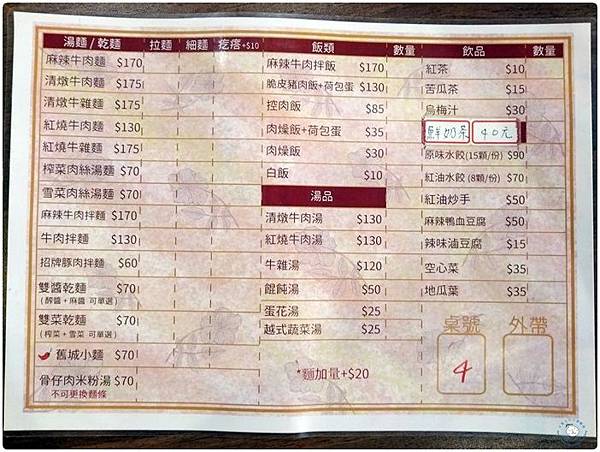 湯麵 / 乾麵 拉麵 細麵 疙瘩+$10
麻辣牛肉麵 $170
清燉牛肉麵 $175
清燉牛雜麵 $175
紅燒牛肉麵 $130
紅燒牛雜麵 $175
榨菜肉絲湯麵 $70
雪菜肉絲湯麵 $70
麻辣牛肉拌麵 $170
牛肉拌麵 $130
招牌豚肉拌麵 $60
雙醬乾麵 $70
(醡醬+麻醬 可單選)
雙菜乾麵 $70
(榨菜+雪菜 可單選)
舊城小麵 $70
骨仔肉米粉湯 $70
不可更換麵條
飯類 數量
麻辣牛肉拌飯 $170
脆皮豬肉飯+荷包蛋 $130
控肉飯 $85
肉燥飯+荷包蛋 $35
肉燥飯 $30
白飯 $10
湯品
清燉牛肉湯 $130
紅燒牛肉湯 $130
牛雜湯 $120
餛飩湯 $50
蛋花湯 $25
越式蔬菜湯 $25
*麵加量+$20
飲品 數量
紅茶 $10
苦瓜茶 $15
烏梅汁 $30
鮮奶茶 40元
原味水餃(15顆/份) $90
紅油水餃 (8顆/份) $70
紅油炒手 $50
麻辣鴨血豆腐 $50
辣味滷豆腐 $15
空心菜 $35
地瓜葉 $35
桌號 外帶
4